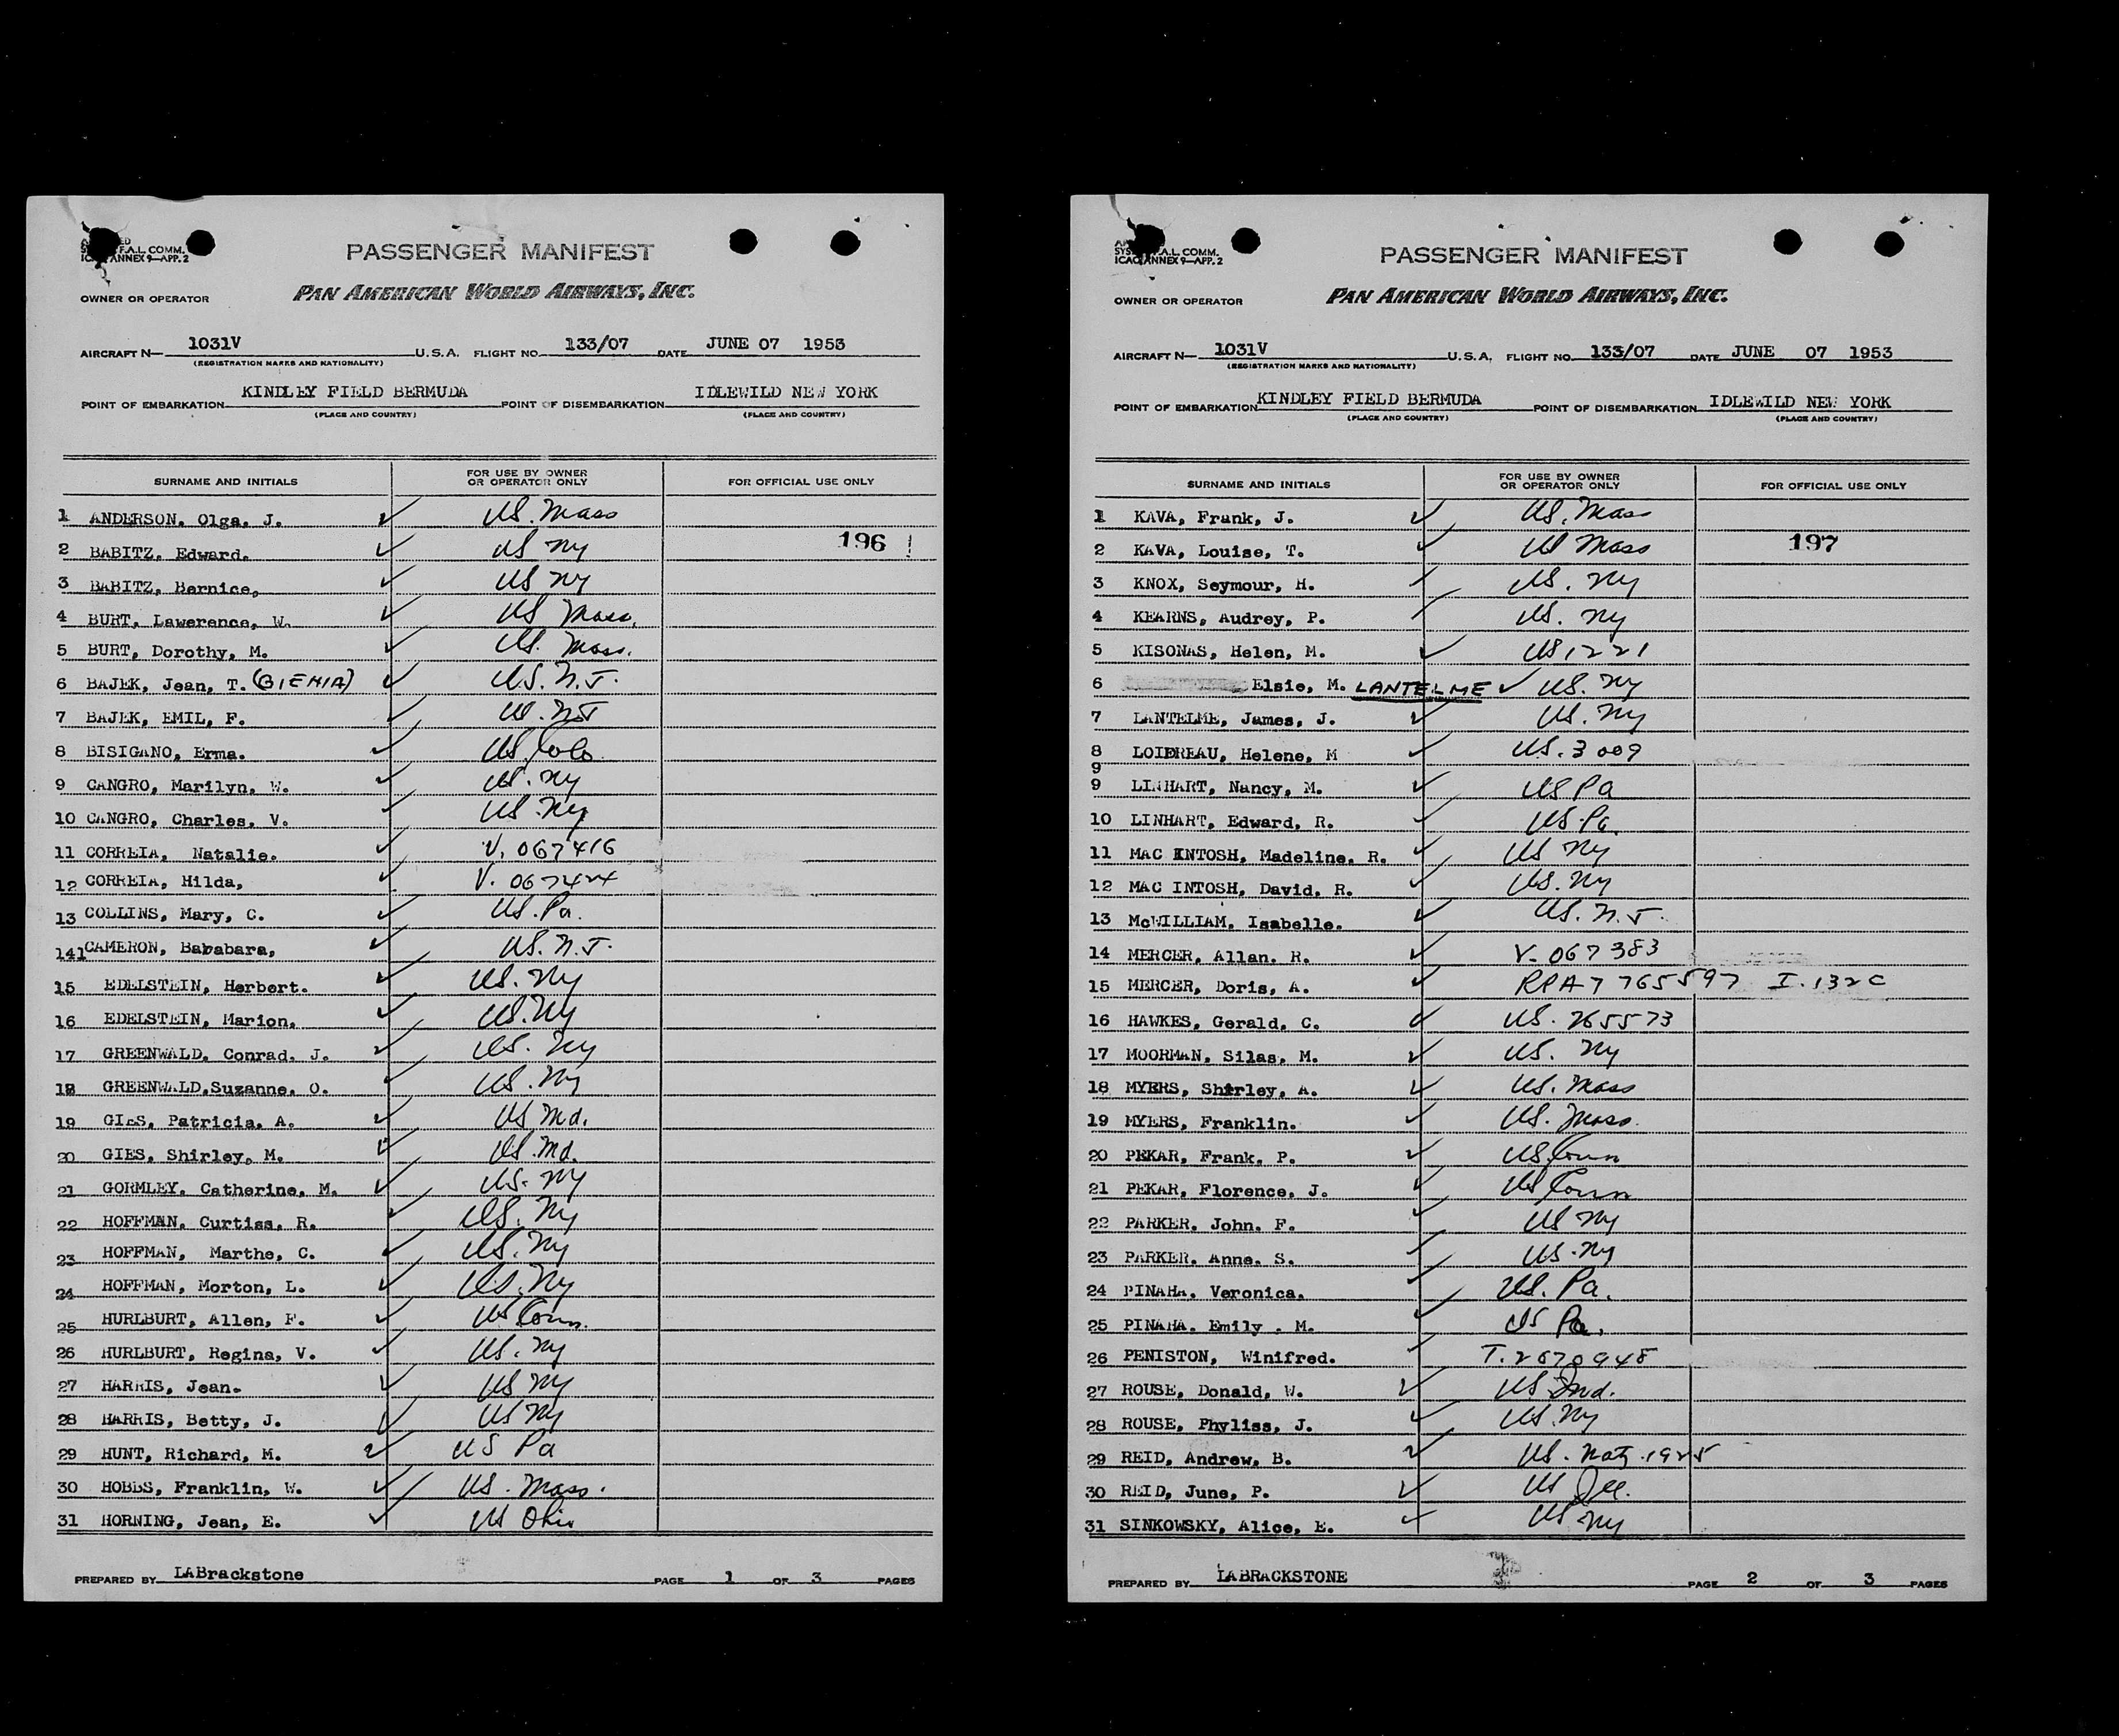 F.A.L. COMM.
ANNEX 9—APP. 2
PASSENGER MANIFEST
OWNER OR OPERATOR
PAN AMERICAN WORLD AIRWAYS, INC.
AIRCRAFT N— 1031V U.S.A. FLIGHT NO. 133/07 DATE JUNE 07 1953
(REGISTRATION MARKS AND NATIONALITY)
POINT OF EMBARKATION KINDLEY FIELD BERMUDA POINT OF DISEMBARKATION IDLEWILD NEW YORK
(PLACE AND COUNTRY) (PLACE AND COUNTRY)
SURNAME AND INITIALS FOR USE BY OWNER OR OPERATOR ONLY FOR OFFICIAL USE ONLY
1 ANDERSON. Olga. J. ✓ US. Mass
2 BABITZ. Edward. ✓ US NY 196
3 BABITZ, Bernice, ✓ US NY
4 BURT, Lawerence, W. ✓ US Mass.
5 BURT, Dorothy, M. ✓ US. Mass.
6 BAJEK, Jean, T. (BIENIA) ✓ U.S. N.J.
7 BAJEK, EMIL, F. ✓ US. NJ
8 BISIGANO, Erma. ✓ US Colo
9 CANGRO, Marilyn, W. ✓ US. NY
10 CANGRO, Charles, V. ✓ US. NY
11 CORREIA, Natalie. ✓ V. 067416
12 CORREIA, Hilda, ✓ V. 067424
13 COLLINS, Mary, C. ✓ US. Pa.
141 CAMERON, Bababara, ✓ US. N.J.
15 EDELSTEIN, Herbert. ✓ US. NY
16 EDELSTEIN, Marion, ✓ US. NY
17 GREENWALD, Conrad. J. ✓ US. NY
18 GREENWALD,Suzanne, O. ✓ US. NY
19 GIES, Patricia, A. ✓ US Md.
20 GIES, Shirley, M. ✓ US. Md.
21 GORMLEY, Catherine, M. ✓ US. NY
22 HOFFMAN, Curtiss, R. ✓ US. NY
23 HOFFMAN, Marthe, C. ✓ US. NY
24 HOFFMAN, Morton, L. ✓ US. NY
25 HURLBURT, Allen, F. ✓ US Conn.
26 HURLBURT, Regina, V. ✓ US. NY
27 HARRIS, Jean. ✓ US NY
28 HARRIS, Betty, J. ✓ US NY
29 HUNT, Richard, M. ✓ US Pa
30 HOBBS, Franklin, W. ✓ US. Mass.
31 HORNING, Jean, E. ✓ US Ohio
PREPARED BY LABrackstone PAGE 1 OF 3 PAGES
F.A.L. COMM.
ICAO ANNEX 9—APP. 2
PASSENGER MANIFEST
OWNER OR OPERATOR
PAN AMERICAN WORLD AIRWAYS, INC.
AIRCRAFT N— 1031V U.S.A. FLIGHT NO. 133/07 DATE JUNE 07 1953
(REGISTRATION MARKS AND NATIONALITY)
POINT OF EMBARKATION KINDLEY FIELD BERMUDA POINT OF DISEMBARKATION IDLEWILD NEW YORK
(PLACE AND COUNTRY) (PLACE AND COUNTRY)
SURNAME AND INITIALS FOR USE BY OWNER OR OPERATOR ONLY FOR OFFICIAL USE ONLY
1 KAVA, Frank, J. ✓ US. Mass
2 KAVA, Louise, T. ✓ US Mass 197
3 KNOX, Seymour, H. ✓ US. NY
4 KEARNS, Audrey, P. ✓ US. NY
5 KISONAS, Helen, M. ✓ US 1221
6 Elsie, M. LANTELME ✓ US. NY
7 LANTELME, James, J. ✓ US. NY
8 LOIDREAU, Helene, M ✓ US. 3009
9
9 LINHART, Nancy, M. ✓ US Pa
10 LINHART, Edward, R. ✓ US. Pa.
11 MAC INTOSH, Madeline, R. ✓ US NY
12 MAC INTOSH, David, R. ✓ US. NY
13 McWILLIAM, Isabelle. ✓ US. N.J.
14 MERCER, Allan. R. ✓ V. 067383
15 MERCER, Doris, A. ✓ RPA7 765597 I. 132C
16 HAWKES, Gerald, C. ✓ US. 765573
17 MOORMAN, Silas, M. ✓ US. NY
18 MYERS, Shirley, A. ✓ US. Mass
19 MYERS, Franklin. ✓ US. Mass.
20 PEKAR, Frank, P. ✓ US Conn
21 PEKAR, Florence, J. ✓ US Conn
22 PARKER, John, F. ✓ US NY
23 PARKER, Anne, S. ✓ US. NY
24 PINAHA. Veronica. ✓ US. Pa.
25 PINAHA. Emily . M. ✓ US Pa.
26 PENISTON, Winifred. ✓ T. 2670948
27 ROUSE, Donald, W. ✓ US Ind.
28 ROUSE, Phyliss, J. ✓ US. NY
29 REID, Andrew, B. ✓ US. Natz. 1925
30 REID, June, P. ✓ US Ill.
31 SINKOWSKY, Alice, E. ✓ US NY
PREPARED BY LABRACKSTONE PAGE 2 OF 3 PAGES